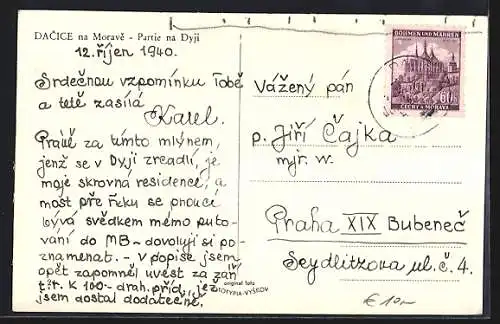 DAČICE na Moravě - Partie na Dyji
12. říjen 1940.
Srdečnou vzpomínku Tobě
a tetě zasílá
Karel.
Práve za tímto mlýnem,
jenž se v Dyji zreadlí, je
moje skrovná residence, a
most pře řeku se pnoucí
bývá svědkem mého puto-
vání do MB - dovoluji si po-
znamenat. - V popise jsem
opět zapomněl uvést za září
K 100- drah. příd., jež
jsem dostal dodatečně.
original foto
FOTOTYPIA-VYŠKOV
BÖHMEN UND MÄHREN
60
ČECHY a MORAVA
Vážený pán
p. Jiří Čajka
mjr. v.
Praha XIX Bubeneč
Seydlitzova ul. č. 4.
€ 10-